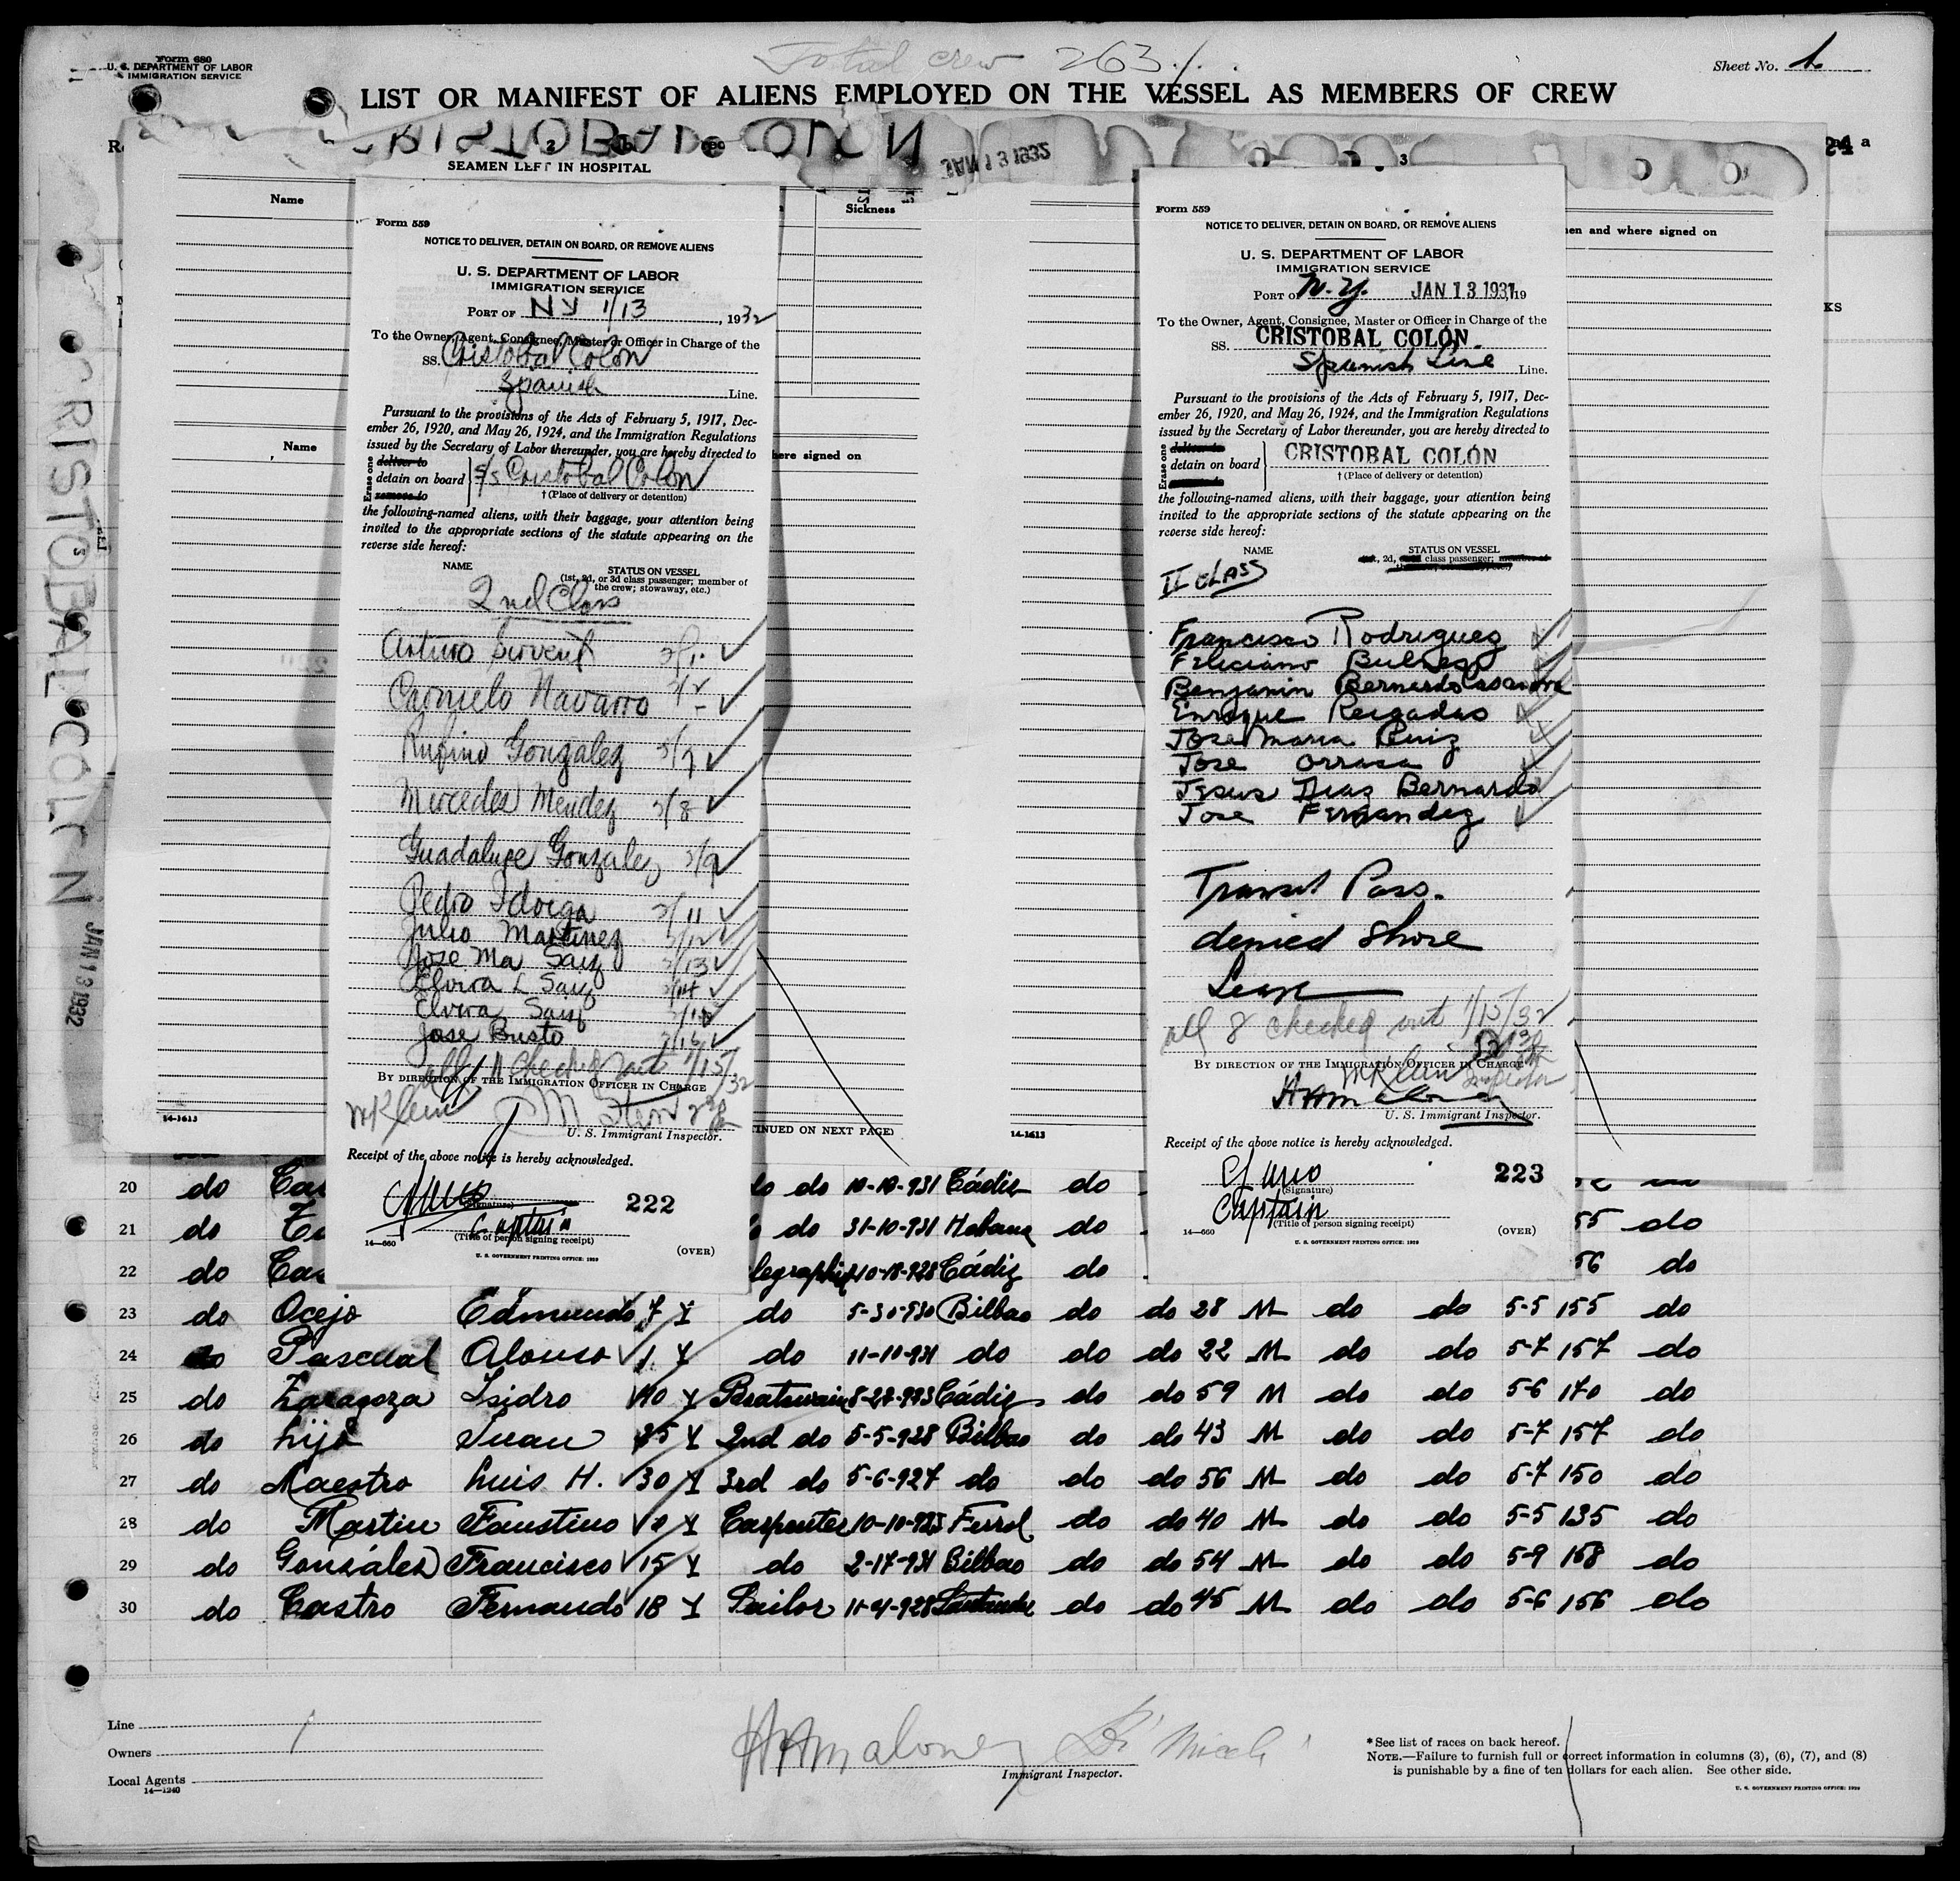 Form 680
U. S. DEPARTMENT OF LABOR
IMMIGRATION SERVICE
Total crew 263
Sheet No. 1.
LIST OR MANIFEST OF ALIENS EMPLOYED ON THE VESSEL AS MEMBERS OF CREW
CRISTOBAL COLON
JAN 13 1932
2
3
a
SEAMEN LEFT IN HOSPITAL
Name
Sickness
Name
here signed on
14-1613
TINUED ON NEXT PAGE)
14-1613
en and where signed on
KS
CRISTOBAL COLON
JAN 13 1932
Form 559
NOTICE TO DELIVER, DETAIN ON BOARD, OR REMOVE ALIENS
U. S. DEPARTMENT OF LABOR
IMMIGRATION SERVICE
PORT OF NY 1/13, 1932
To the Owner, Agent, Consignee, Master or Officer in Charge of the
SS. Cristobal Colon
Spanish Line.
Pursuant to the provisions of the Acts of February 5, 1917, Dec-
ember 26, 1920, and May 26, 1924, and the Immigration Regulations
issued by the Secretary of Labor thereunder, you are hereby directed to
Erase one
deliver to
detain on board } S/S Cristobal Colon
remove to
† (Place of delivery or detention)
the following-named aliens, with their baggage, your attention being
invited to the appropriate sections of the statute appearing on the
reverse side hereof:
NAME STATUS ON VESSEL
(1st, 2d, or 3d class passenger; member of
the crew; stowaway, etc.)
2nd Class
Arturo Sirvent
Carmelo Navarro
Rufino Gonzalez 2/7
Mercedes Mendez 2/8
Guadalupe Gonzalez 2/9
Pedro Idoiga 2/11
Julio Martinez 2/12
Jose Ma Saiz 2/13
Elvira L Saiz 2/14
Elvira Saiz
Jose Busto 2/16
all 11 checked out 1/15/32
BY DIRECTION OF THE IMMIGRATION OFFICER IN CHARGE
M Klein
U. S. Immigrant Inspector.
Receipt of the above notice is hereby acknowledged.
(Signature)
Captain
222
14—660
(Title of person signing receipt)
(OVER)
U. S. GOVERNMENT PRINTING OFFICE: 1929
Form 559
NOTICE TO DELIVER, DETAIN ON BOARD, OR REMOVE ALIENS
U. S. DEPARTMENT OF LABOR
IMMIGRATION SERVICE
PORT OF N.Y. JAN 13 1932, 19
To the Owner, Agent, Consignee, Master or Officer in Charge of the
SS. CRISTOBAL COLÓN
Spanish Line Line.
Pursuant to the provisions of the Acts of February 5, 1917, Dec-
ember 26, 1920, and May 26, 1924, and the Immigration Regulations
issued by the Secretary of Labor thereunder, you are hereby directed to
Erase one
detain on board } CRISTOBAL COLÓN
† (Place of delivery or detention)
the following-named aliens, with their baggage, your attention being
invited to the appropriate sections of the statute appearing on the
reverse side hereof:
NAME STATUS ON VESSEL
2d, class passenger;
II CLASS
Francisco Rodriguez
Feliciano
Benjamin Bernardo Casanova
Enrique Reigadas
Jose Maria Ruiz
Jose Orrasa
Jesus Dias Bernardo
Jose Fernandez
Transit Pass.
denied shore
Leave
all 8 checked out 1/15/32
BY DIRECTION OF THE IMMIGRATION OFFICER IN CHARGE
M Klein Inspector
HA Maloney
U. S. Immigrant Inspector.
Receipt of the above notice is hereby acknowledged.
(Signature)
Captain
223
(Title of person signing receipt)
14—660
(OVER)
U. S. GOVERNMENT PRINTING OFFICE: 1929
20 do do 10-10-931 Cádiz do
21 do do 31-10-931 Habana do 55 do
22 do 10-18-928 Cádiz do 56 do
23 do Ocejo Edmundo 7 Y do 5-30-930 Bilbao do do 28 M do do 5-5 155 do
24 do Pascual Alonso 1 Y do 11-11-931 do do do 22 M do do 5-7 157 do
25 do Zaragoza Isidro 40 Y Boatswain 8-27-923 Cádiz do do 59 M do do 5-6 170 do
26 do Lijó Juan 25 Y 2nd do 5-5-928 Bilbao do do 43 M do do 5-7 157 do
27 do Maestro Luis H. 30 Y 3rd do 5-6-927 do do do 56 M do do 5-7 150 do
28 do Martin Faustino Y Carpenter 10-10-923 Ferrol do do 40 M do do 5-5 135 do
29 do Gonsáles Francisco 15 Y do 2-17-931 Bilbao do do 54 M do do 5-9 168 do
30 do Castro Fernando 18 Y Sailor 11-4-928 Santander do do 45 M do do 5-6 156 do
Line
Owners
Local Agents
14—1240
HA Maloney
Immigrant Inspector.
* See list of races on back hereof.
NOTE.—Failure to furnish full or correct information in columns (3), (6), (7), and (8)
is punishable by a fine of ten dollars for each alien. See other side.
U. S. GOVERNMENT PRINTING OFFICE: 1929